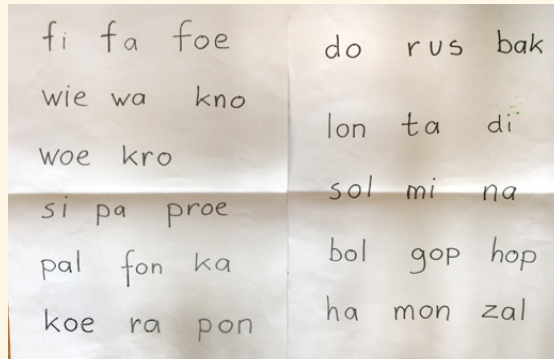 fi fa foe
wie wa kno
woe kro
si pa proe
pal fon ka
koe ra pon
do rus bak
lon ta di
sol mi na
bol gop hop
ha mon zal